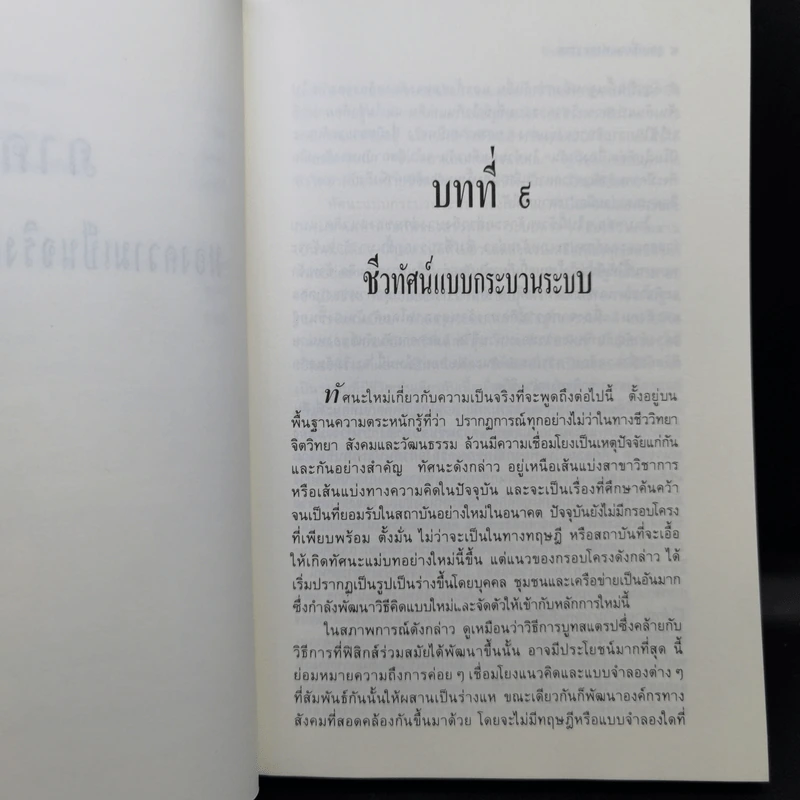 บทที่ ๙
ชีวทัศน์แบบกระบวนระบบ
ทัศนะใหม่เกี่ยวกับความเป็นจริงที่จะพูดถึงต่อไปนี้ ตั้งอยู่บน
พื้นฐานความตระหนักรู้ที่ว่า ปรากฏการณ์ทุกอย่างไม่ว่าในทางชีววิทยา
จิตวิทยา สังคมและวัฒนธรรม ล้วนมีความเชื่อมโยงเป็นเหตุปัจจัยแก่กัน
และกันอย่างสำคัญ ทัศนะดังกล่าว อยู่เหนือเส้นแบ่งสาขาวิชาการ
หรือเส้นแบ่งทางความคิดในปัจจุบัน และจะเป็นเรื่องที่ศึกษาค้นคว้า
จนเป็นที่ยอมรับในสถาบันอย่างใหม่ในอนาคต ปัจจุบันยังไม่มีกรอบโครง
ที่เพียบพร้อม ตั้งมั่น ไม่ว่าจะเป็นในทางทฤษฎี หรือสถาบันที่จะเอื้อ
ให้เกิดทัศนะแม่บทอย่างใหม่นี้ขึ้น แต่แนวของกรอบโครงดังกล่าว ได้
เริ่มปรากฏเป็นรูปเป็นร่างขึ้นโดยบุคคล ชุมชนและเครือข่ายเป็นอันมาก
ซึ่งกำลังพัฒนาวิธีคิดแบบใหม่และจัดตัวให้เข้ากับหลักการใหม่นี้
ในสภาพการณ์ดังกล่าว ดูเหมือนว่าวิธีการบูทสแตรปซึ่งคล้ายกับ
วิธีการที่ฟิสิกส์ร่วมสมัยได้พัฒนาขึ้นนั้น อาจมีประโยชน์มากที่สุด นี้
ย่อมหมายความถึงการค่อย ๆ เชื่อมโยงแนวคิดและแบบจำลองต่าง ๆ
ที่สัมพันธ์กันนั้นให้ผสานเป็นร่างแห ขณะเดียวกันก็พัฒนาองค์กรทาง
สังคมที่สอดคล้องกันขึ้นมาด้วย โดยจะไม่มีทฤษฎีหรือแบบจำลองใดที่